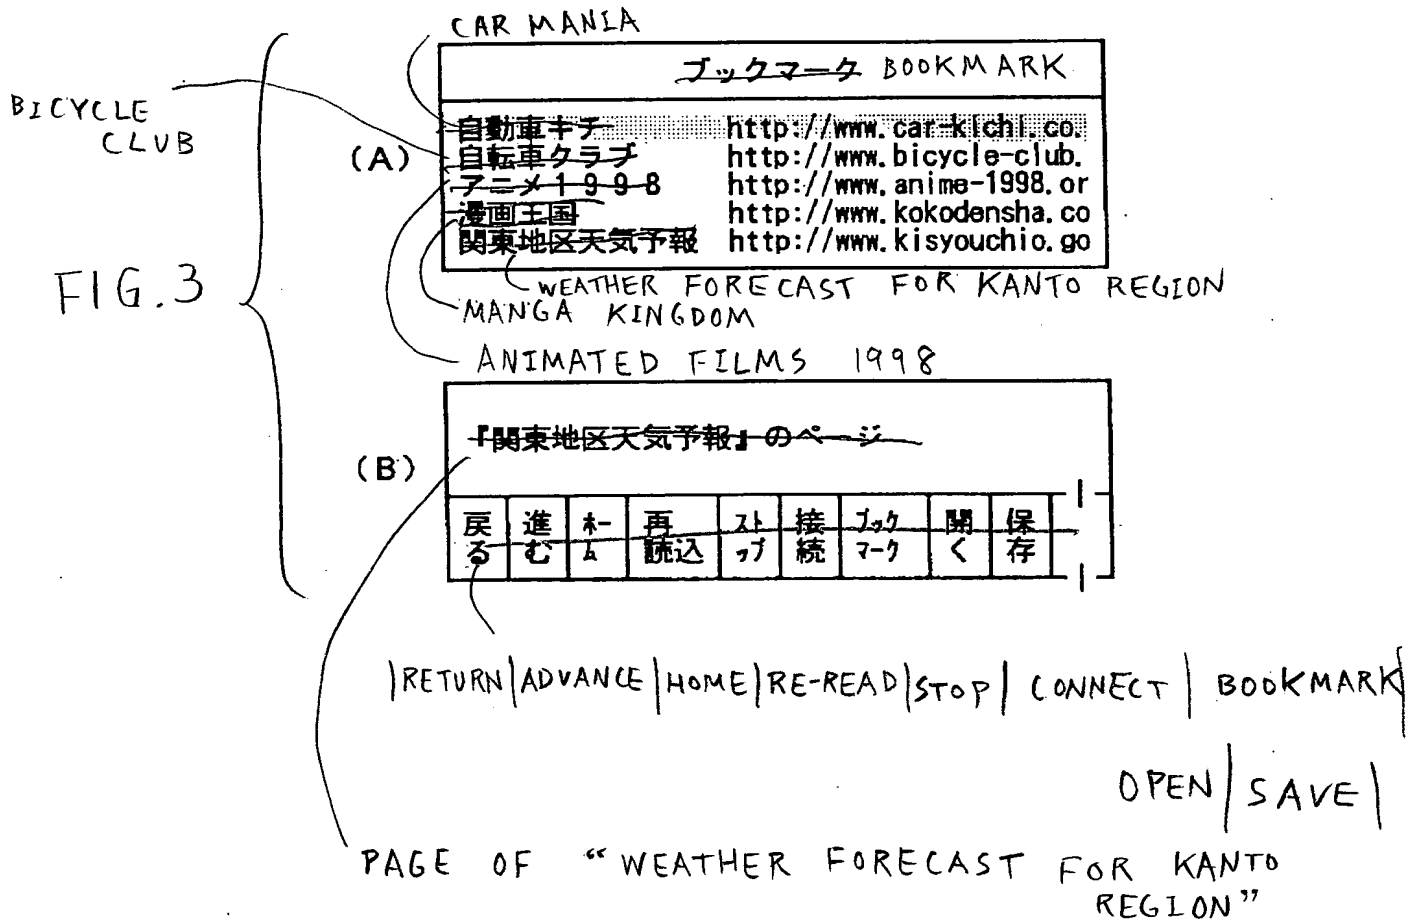 CAR MANIA
ブックマーク BOOKMARK
BICYCLE
CLUB
(A)
自動車キチ http://www.car-kichi.co.
自転車クラブ http://www.bicycle-club.
アニメ1998 http://www.anime-1998.or
漫画王国 http://www.kokodensha.co
関東地区天気予報 http://www.kisyouchio.go
FIG.3
WEATHER FORECAST FOR KANTO REGION
MANGA KINGDOM
ANIMATED FILMS 1998
(B)
『関東地区天気予報』のページ
戻る 進む ホーム 再読込 ストップ 接続 ブックマーク 開く 保存
|RETURN|ADVANCE|HOME|RE-READ|STOP| CONNECT | BOOKMARK|
OPEN| SAVE|
PAGE OF “WEATHER FORECAST FOR KANTO
REGION”